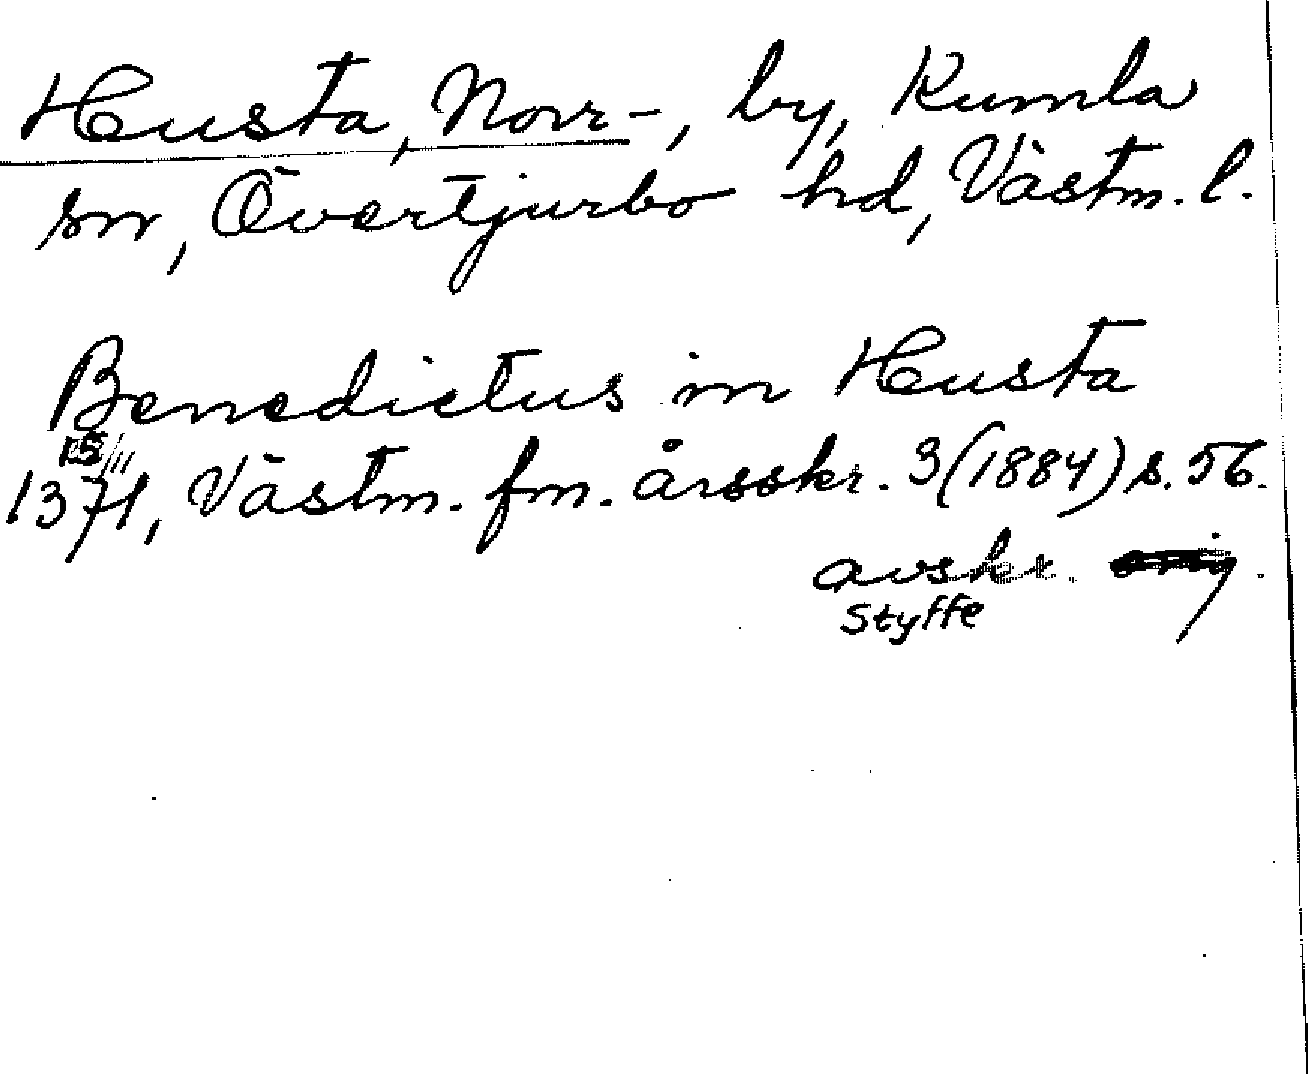 Husta, Norr-, by, Kumla
sn, Övertjurbo hd, Västm. l.
Benedictus in Husta
15/11
1371, Västm. fm. årsskr. 3 (1884) s. 56.
avskr.
Styffe